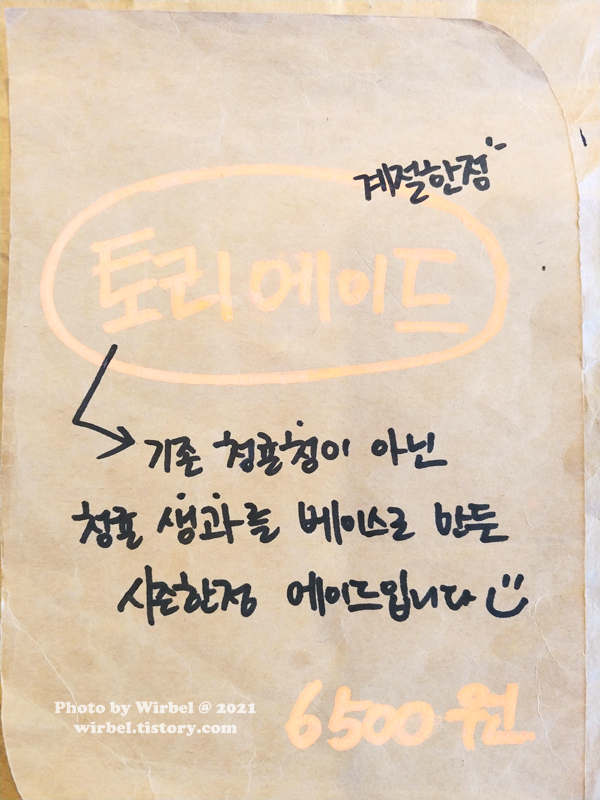 계절한정
토리 에이드
기존 청귤청이 아닌
청귤 생과를 베이스로 만든
시즌한정 에이드입니다
6500원
Photo by Wirbel @ 2021
wirbel.tistory.com